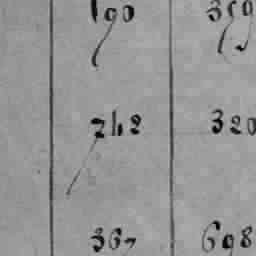 190 359
742 320
367 698